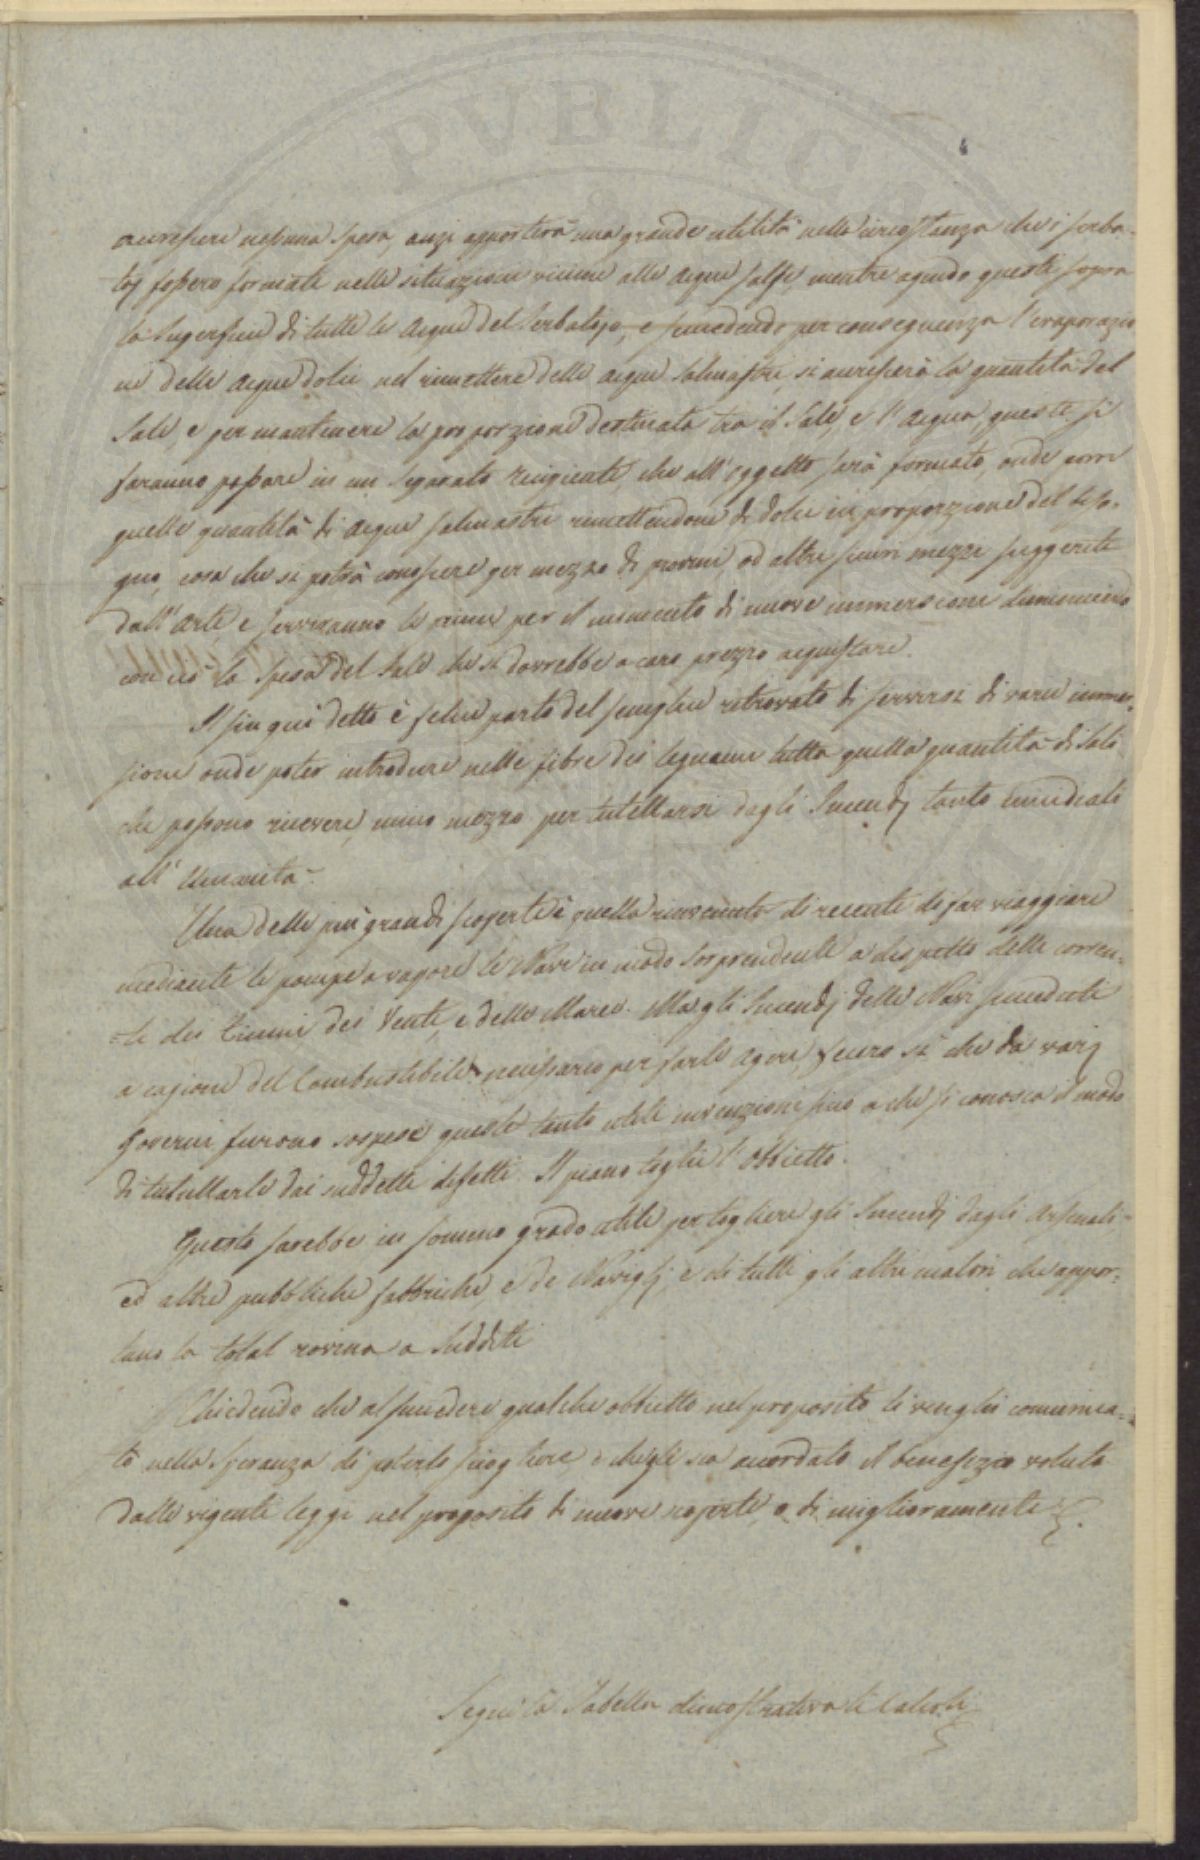 PVBLICA
accrescere nessuna spesa, anzi apporterà una grande utilità nella circostanza che i serba-
toj fossero formati nelle situazioni vicine alle acque salse, mentre agendo questi sopra
la superficie di tutte le acque del Serbatojo, e succedendo per conseguenza l'evaporazio
ne delle acque dolci nel rimettere delle acque salmastre, si accrescerà la quantità del
Sale, e per mantenere la proporzione destinata tra il Sale, e l'acqua, queste si
faranno passare in un separato recipiente, che all'oggetto sarà formato, onde
quella quantità di acque salmastre rimettendone di dolci in proporzione del biso-
gno, cosa che si potrà conoscere per mezzo di provini, od altri sicuri mezzi suggeriti
dall'arte e serviranno le prime per il momento di nuove immersioni diminuendo
con ciò la spesa del Sale che si dovrebbe a caro prezzo acquistare.
Il fin qui detto è felice parto del semplice ritrovato di servirsi di varie immer-
sione onde poter introdurre nelle fibre dei legnami tutta quella quantità di Sali
che possono ricevere, unico mezzo per tutellarsi dagli Incendj tanto micidiali
all'Umanità.
Una delle più grandi scoperte è quella rinvenuta di recente di far viaggiare
mediante le pompe a vapore le Navi in modo sorprendente a dispetto delle corren-
-ti dei Fiumi dei Venti, e delle Maree. Ma gli Incendj delle Navi succeduti
a cagione del Combustibile necessario per farle agire, fecero sì che da varj
Governi furono sospese queste tanto utili invenzioni fino a che si conosca il modo
di tutullarle dai suddetti difetti. Il piano toglie l'obbietto.
Questo sarebbe in sommo grado utile per togliere gli Incendj dagli Arsenali,
ed altre pubbliche fabbriche, e de Naviglj, e di tutti gli altri malori che appor-
tano la total rovina a Sudditi
Chiedendo che al succedere qualche obbietto nel proposito li venghi comunica-
to nella speranza di poterlo sciogliere, e che gli sia accordato il benefizio voluto
dalle vigenti leggi nel proposito di nuove scoperte, o di miglioramenti
Segue la Tabella dimostrativa li Calcoli